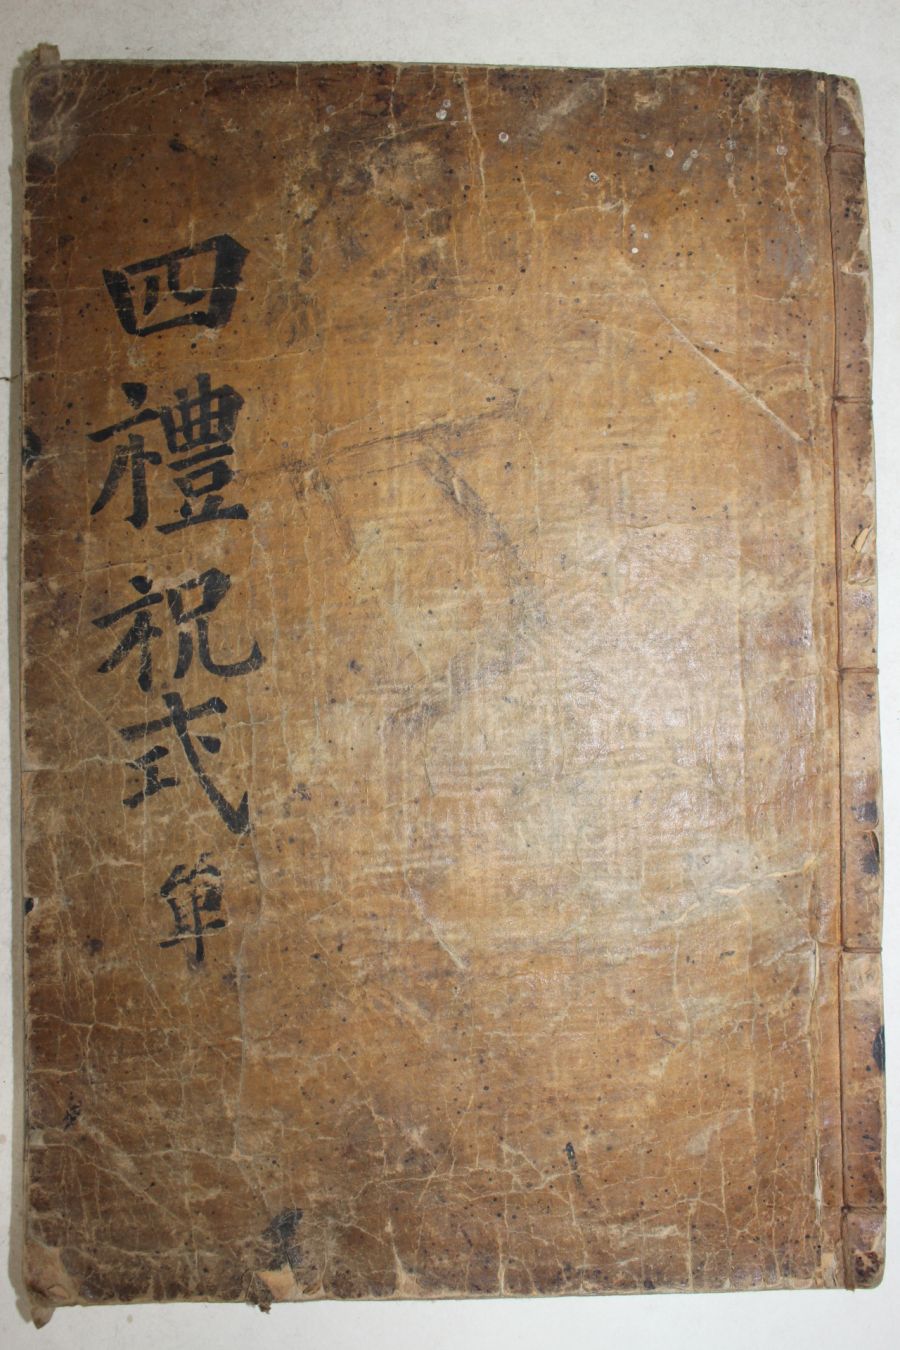 四禮祝式單